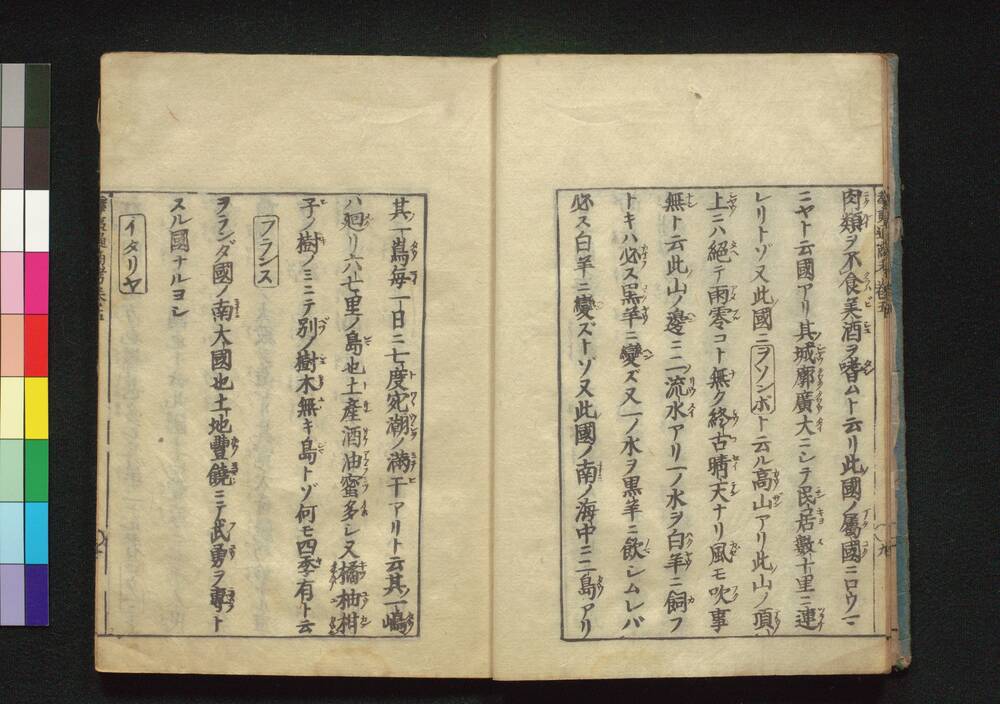 肉類ヲ不食美酒ヲ嗜ムト云リ此國ノ屬國ニロウマ
ニヤト云國アリ其城廓廣大ニシテ民居數十里ニ連
レリトゾ又此國ニヲソンボト云ル高山アリ此山ノ頂
上ニハ絶テ雨零コト無ク終古晴天ナリ風モ吹事
無ト云此山ノ邊ニ二流水アリ一ノ水ヲ白羊ニ飼フ
トキハ必ス黒羊ニ變ズ又一ノ水ヲ黒羊ニ飲シムレバ
必ス白羊ニ變ズトゾ又此國ノ南ノ海中ニ二島アリ
其一嶌毎一日ニ七度宛潮ノ滿干アリト云其一嶋
ハ廻リ六七里ノ島也土産酒油蜜多シ又橘柚柑
子ノ樹ノミニテ別ノ樹木無キ島トゾ何モ四季有ト云
フランス
ヲランダ國ノ南大國也土地豐饒ニテ武勇ヲ專ト
スル國ナルヨシ
イタリヤ